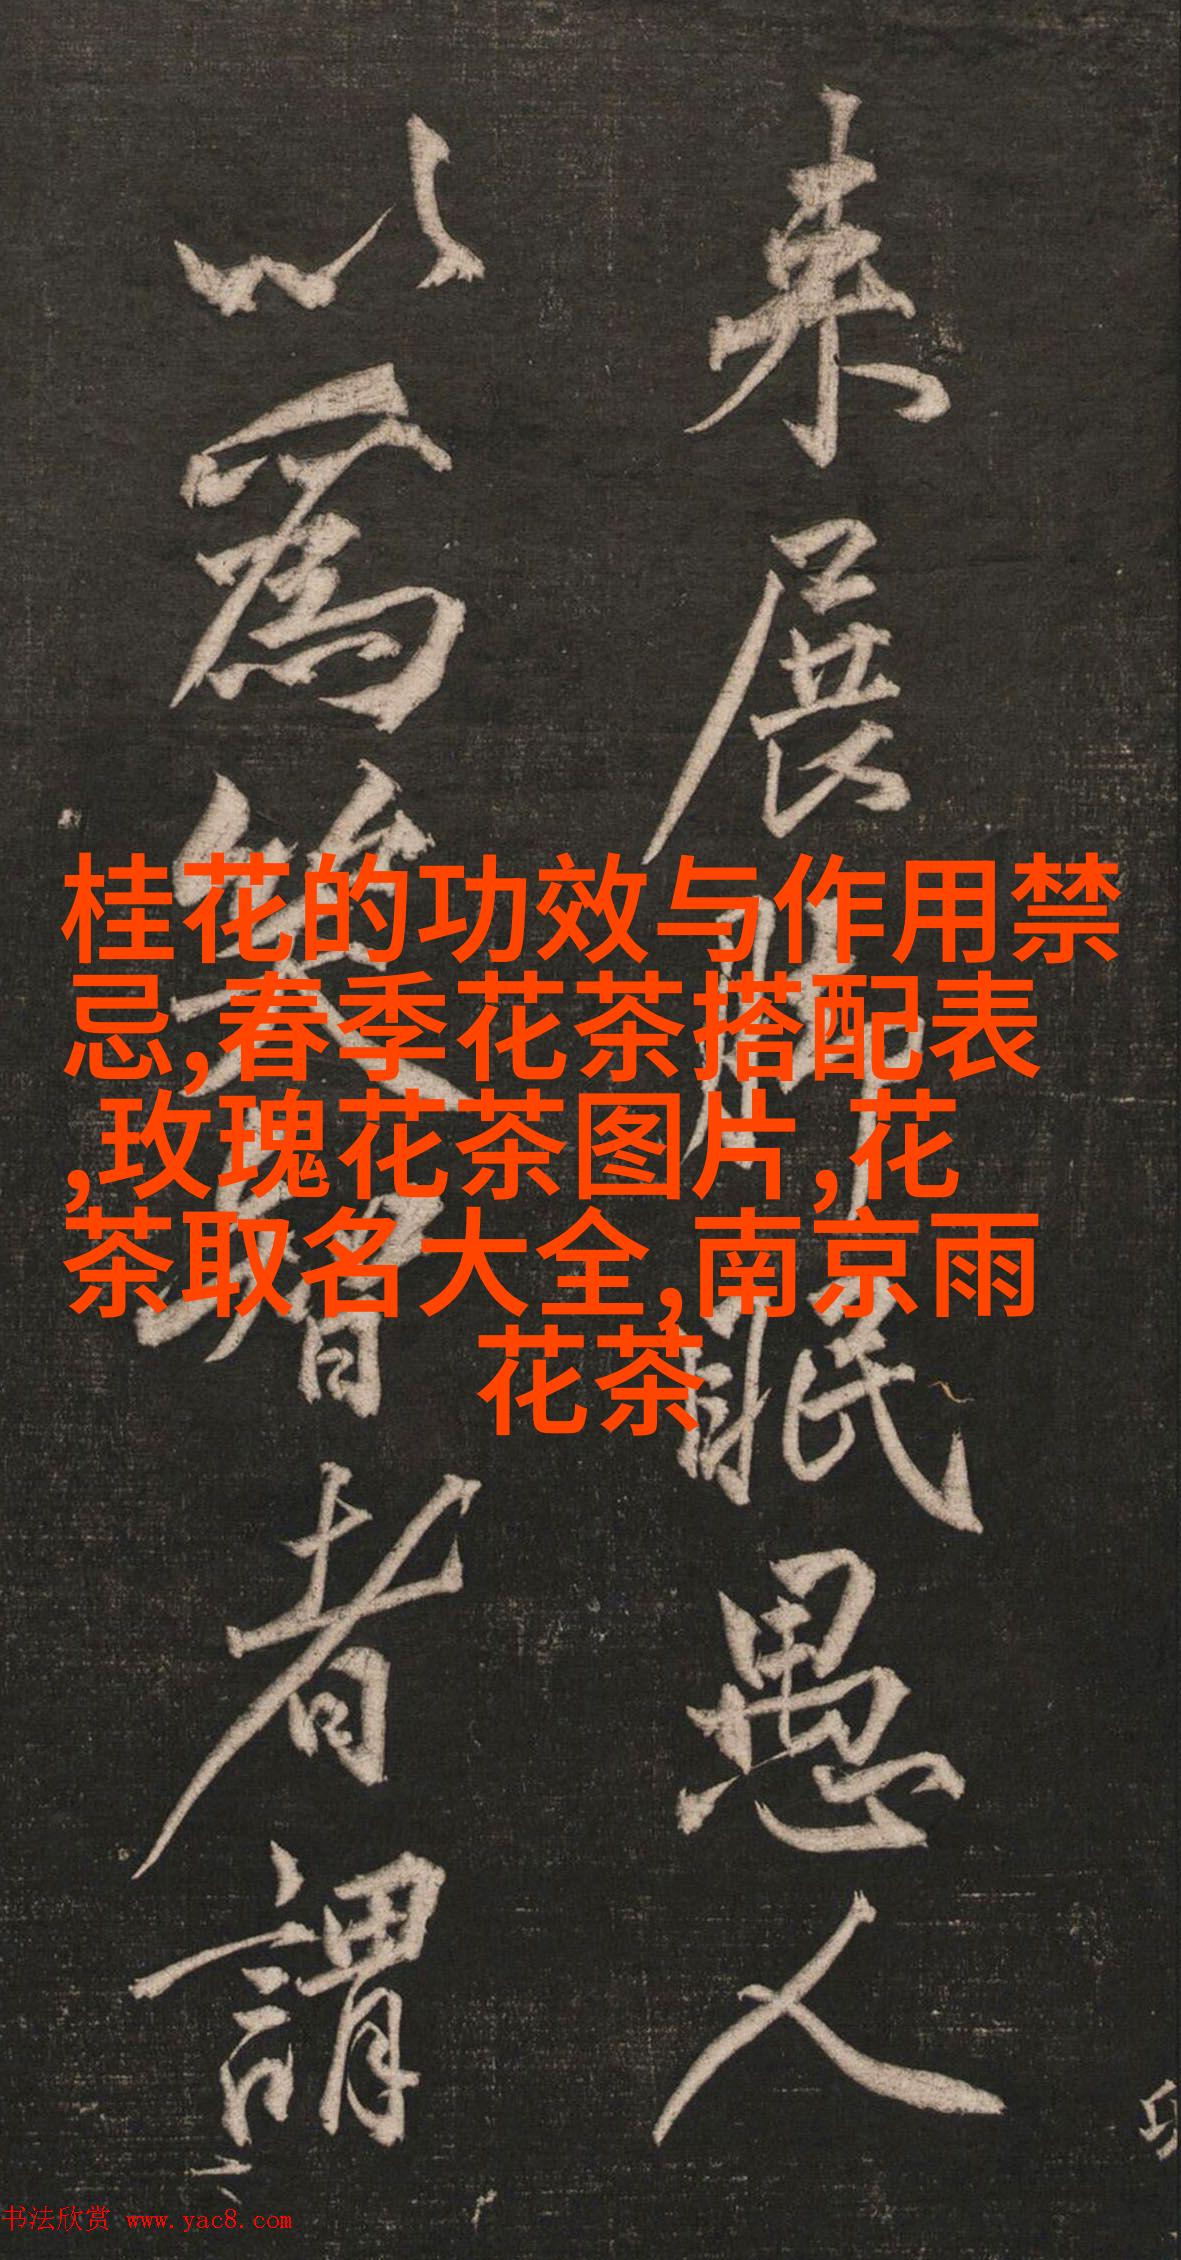 来展脚眠愚人
以為笑智者謂
桂花的功效与作用禁
忌,春季花茶搭配表
,玫瑰花茶图片,花
茶取名大全,南京雨
花茶
书法欣赏 www.yac8.com